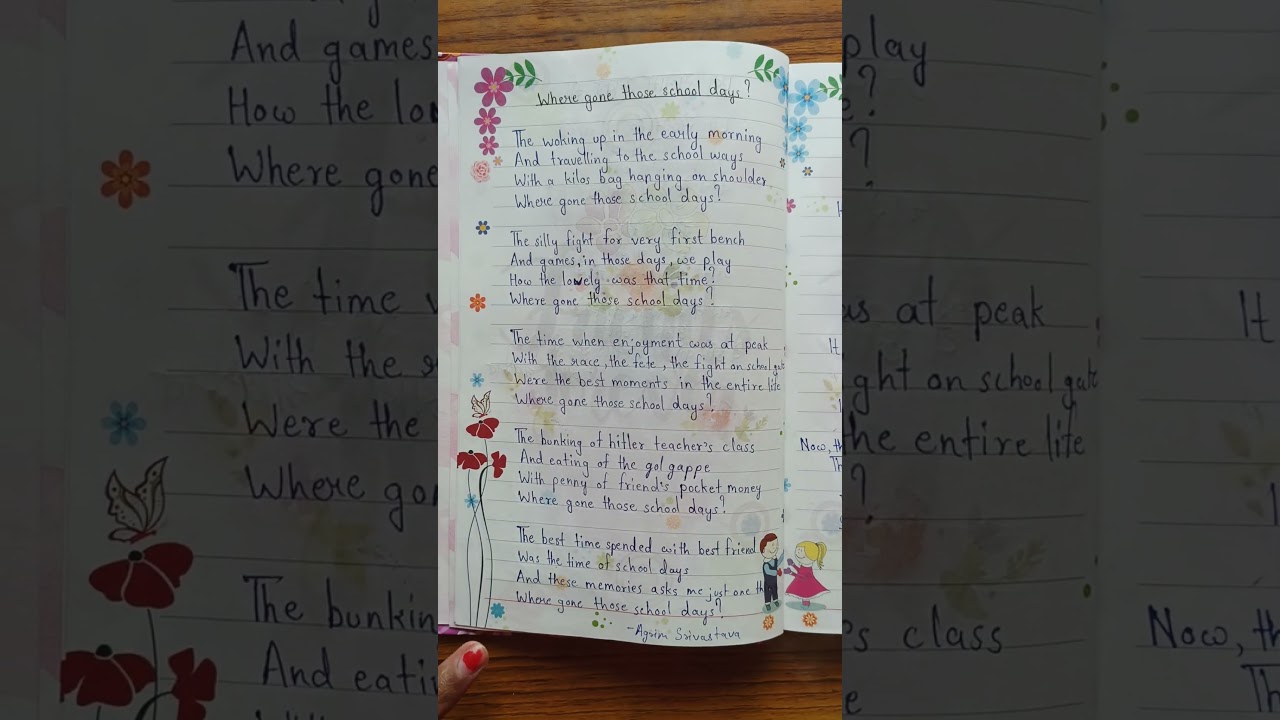 Where gone those school days?
The woking up in the early morning
And travelling to the school ways
With a kilos bag hanging on shoulder
Where gone those school days?
The silly fight for very first bench
And games, in those days, we play
How the lovely was that time?
Where gone those school days?
The time when enjoyment was at peak
With the race, the fete, the fight on school gate
Were the best moments in the entire life
Where gone those school days?
The bunking of hitler teacher's class
And eating of the gol gappe
With penny of friend's pocket money
Where gone those school days?
The best time spended with best friend
Was the time of school days
And these memories asks me just one th
Where gone those school days?
-Agrim Srivastava
It
It
Now, th
Th
And games
How the lo
Where gone
The time
With the
Were the
Where go
The bunkin
And eati
play
?
as at peak
ght on school gate
the entire life
?
s class
It
Now, th
Th